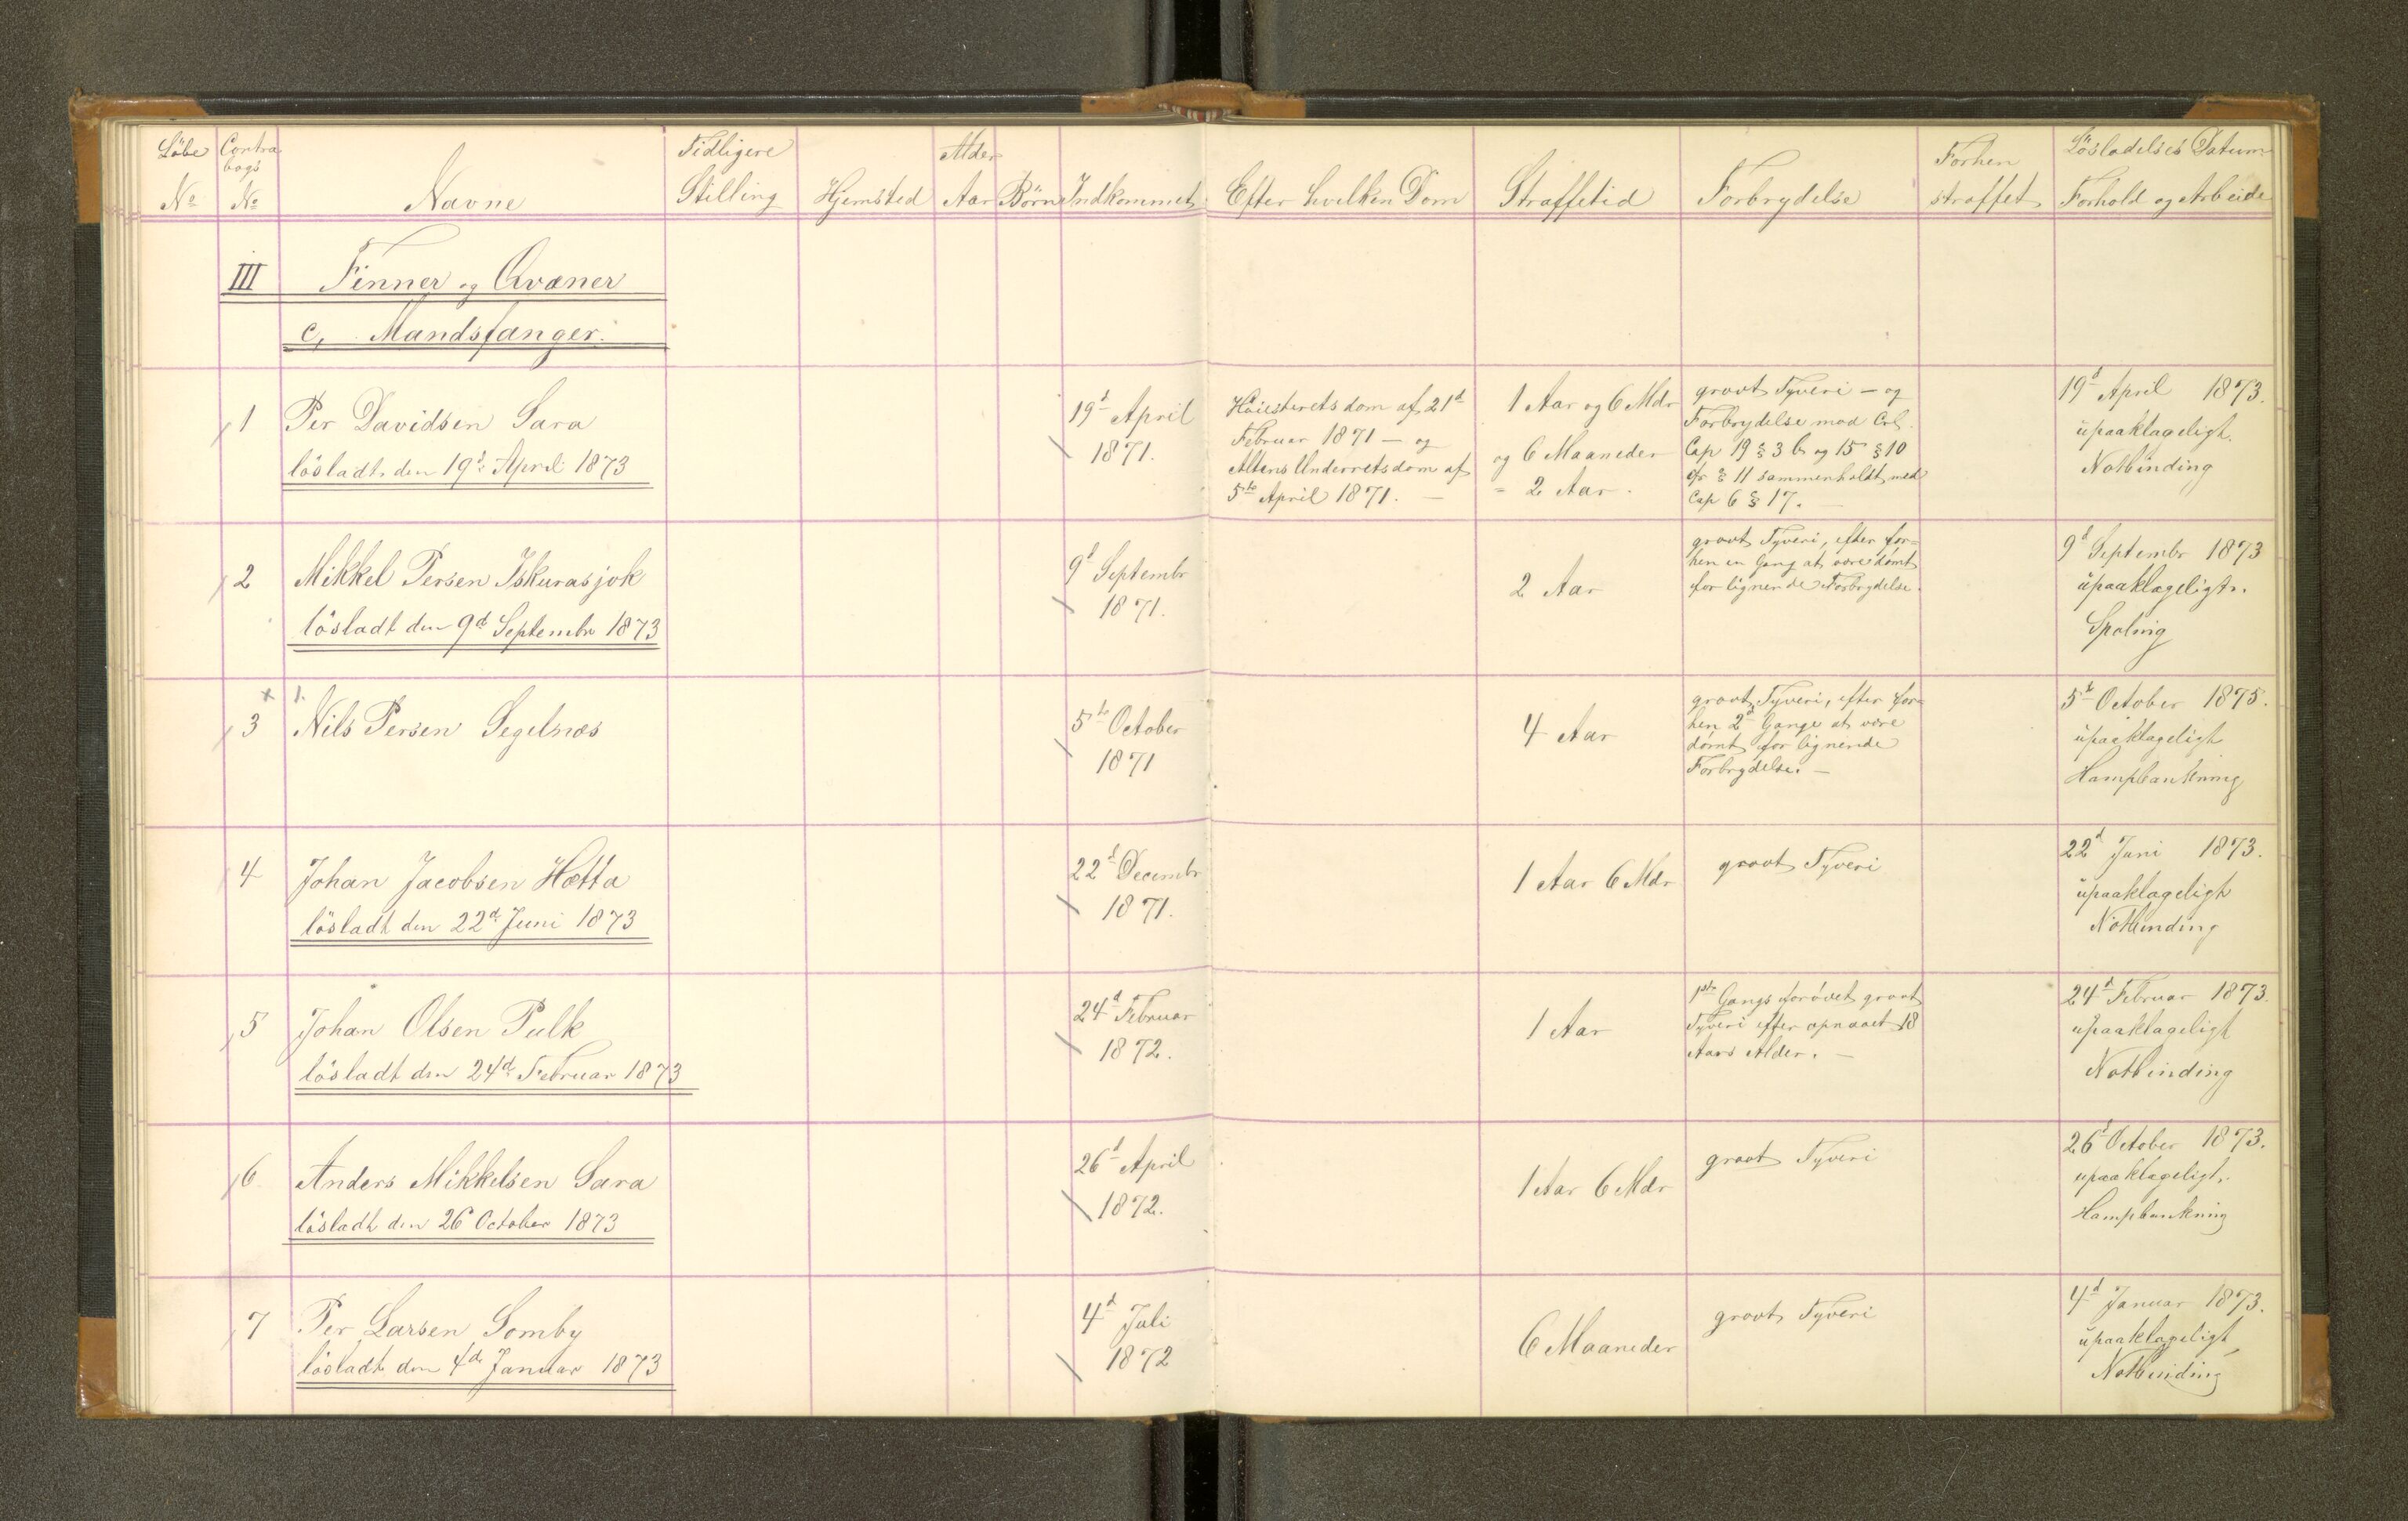 Löbe No
Contra bogs No
Navne
Tidligere Stilling
Hjemsted
Alder Aar
Börn
Indkommet
Efter hvilken Dom
Straffetid
Forbrydelse
Forhen straffet
Lösladelses Datum
Forhold og Arbeide
III Finner og Qvæner
c, Mandsfanger.
1 Per Davidsen Sara
lösladt den 19d April 1873
19d April
1871.
Höiesterets dom af 21d
Februar 1871 — og
Altens Underretsdom af
5te April 1871. —
1 Aar og 6 Mdr
og 6 Maaneder
= 2 Aar.
grovt Tyveri — og
Forbrydelse mod Crl.
Cap 19 § 3 b og 15 § 10
cfr § 11 sammenholdt med
Cap 6 § 17. —
19d April 1873.
upaaklageligt.
Notbinding
2 Mikkel Persen Iskurasjok
lösladt den 9d Septembr 1873
9d Septembr
1871.
2 Aar
grovt Tyveri, efter for=
hen en Gang at være dömt
for lignende Forbrydelse.
9d Septembr 1873
upaaklageligt.
Spoling
x 1.
3 Nils Persen Segelnæs
5te October
1871
4 Aar
grovt Tyveri, efter for=
hen 2d Gange at være
dömt for lignende
Forbrydelse. —
5te October 1875.
upaaklageligt
Hampbankning
4 Johan Jacobsen Hætta
lösladt den 22d Juni 1873
22d Decembr
1871.
1 Aar 6 Mdr
grovt Tyveri
22d Juni 1873.
upaaklageligt
Notbinding
5 Johan Olsen Pulk
lösladt den 24d Februar 1873
24d Februar
1872.
1 Aar
1ste Gangs forövet grovt
Tyveri efter opnaaet 18
Aars Alder. —
24d Februar 1873.
upaaklageligt
Notbinding
6 Anders Mikkelsen Sara
lösladt den 26 October 1873
26d April
1872.
1 Aar 6 Mdr
grovt Tyveri
26d October 1873.
upaaklageligt.
Hampbankning
7 Per Larsen Somby
lösladt den 4de Januar 1873
4d Juli
1872
6 Maaneder
grovt Tyveri
4d Januar 1873.
upaaklageligt
Notbinding